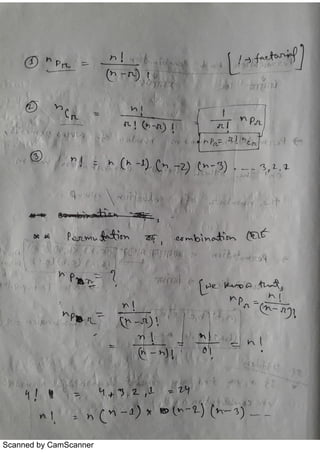 ① nPr = n! / (n-r)! [! → factorial]
② nCr = n! / r! (n-r)! = 1/r! nPr
nPr = r! nCr
③ n! = n (n-1) (n-2) (n-3) .... 3, 2, 1
** Permutation, combination
nPn = ?
[we know that, nPr = n! / (n-r)!
nPr = n! / (n-r)!
= n! / (n-n)! = n! / 0! = n!
4! = 4, 3, 2, 1 = 24
n! = n (n-1) × (n-2) (n-3) ---
Scanned by CamScanner